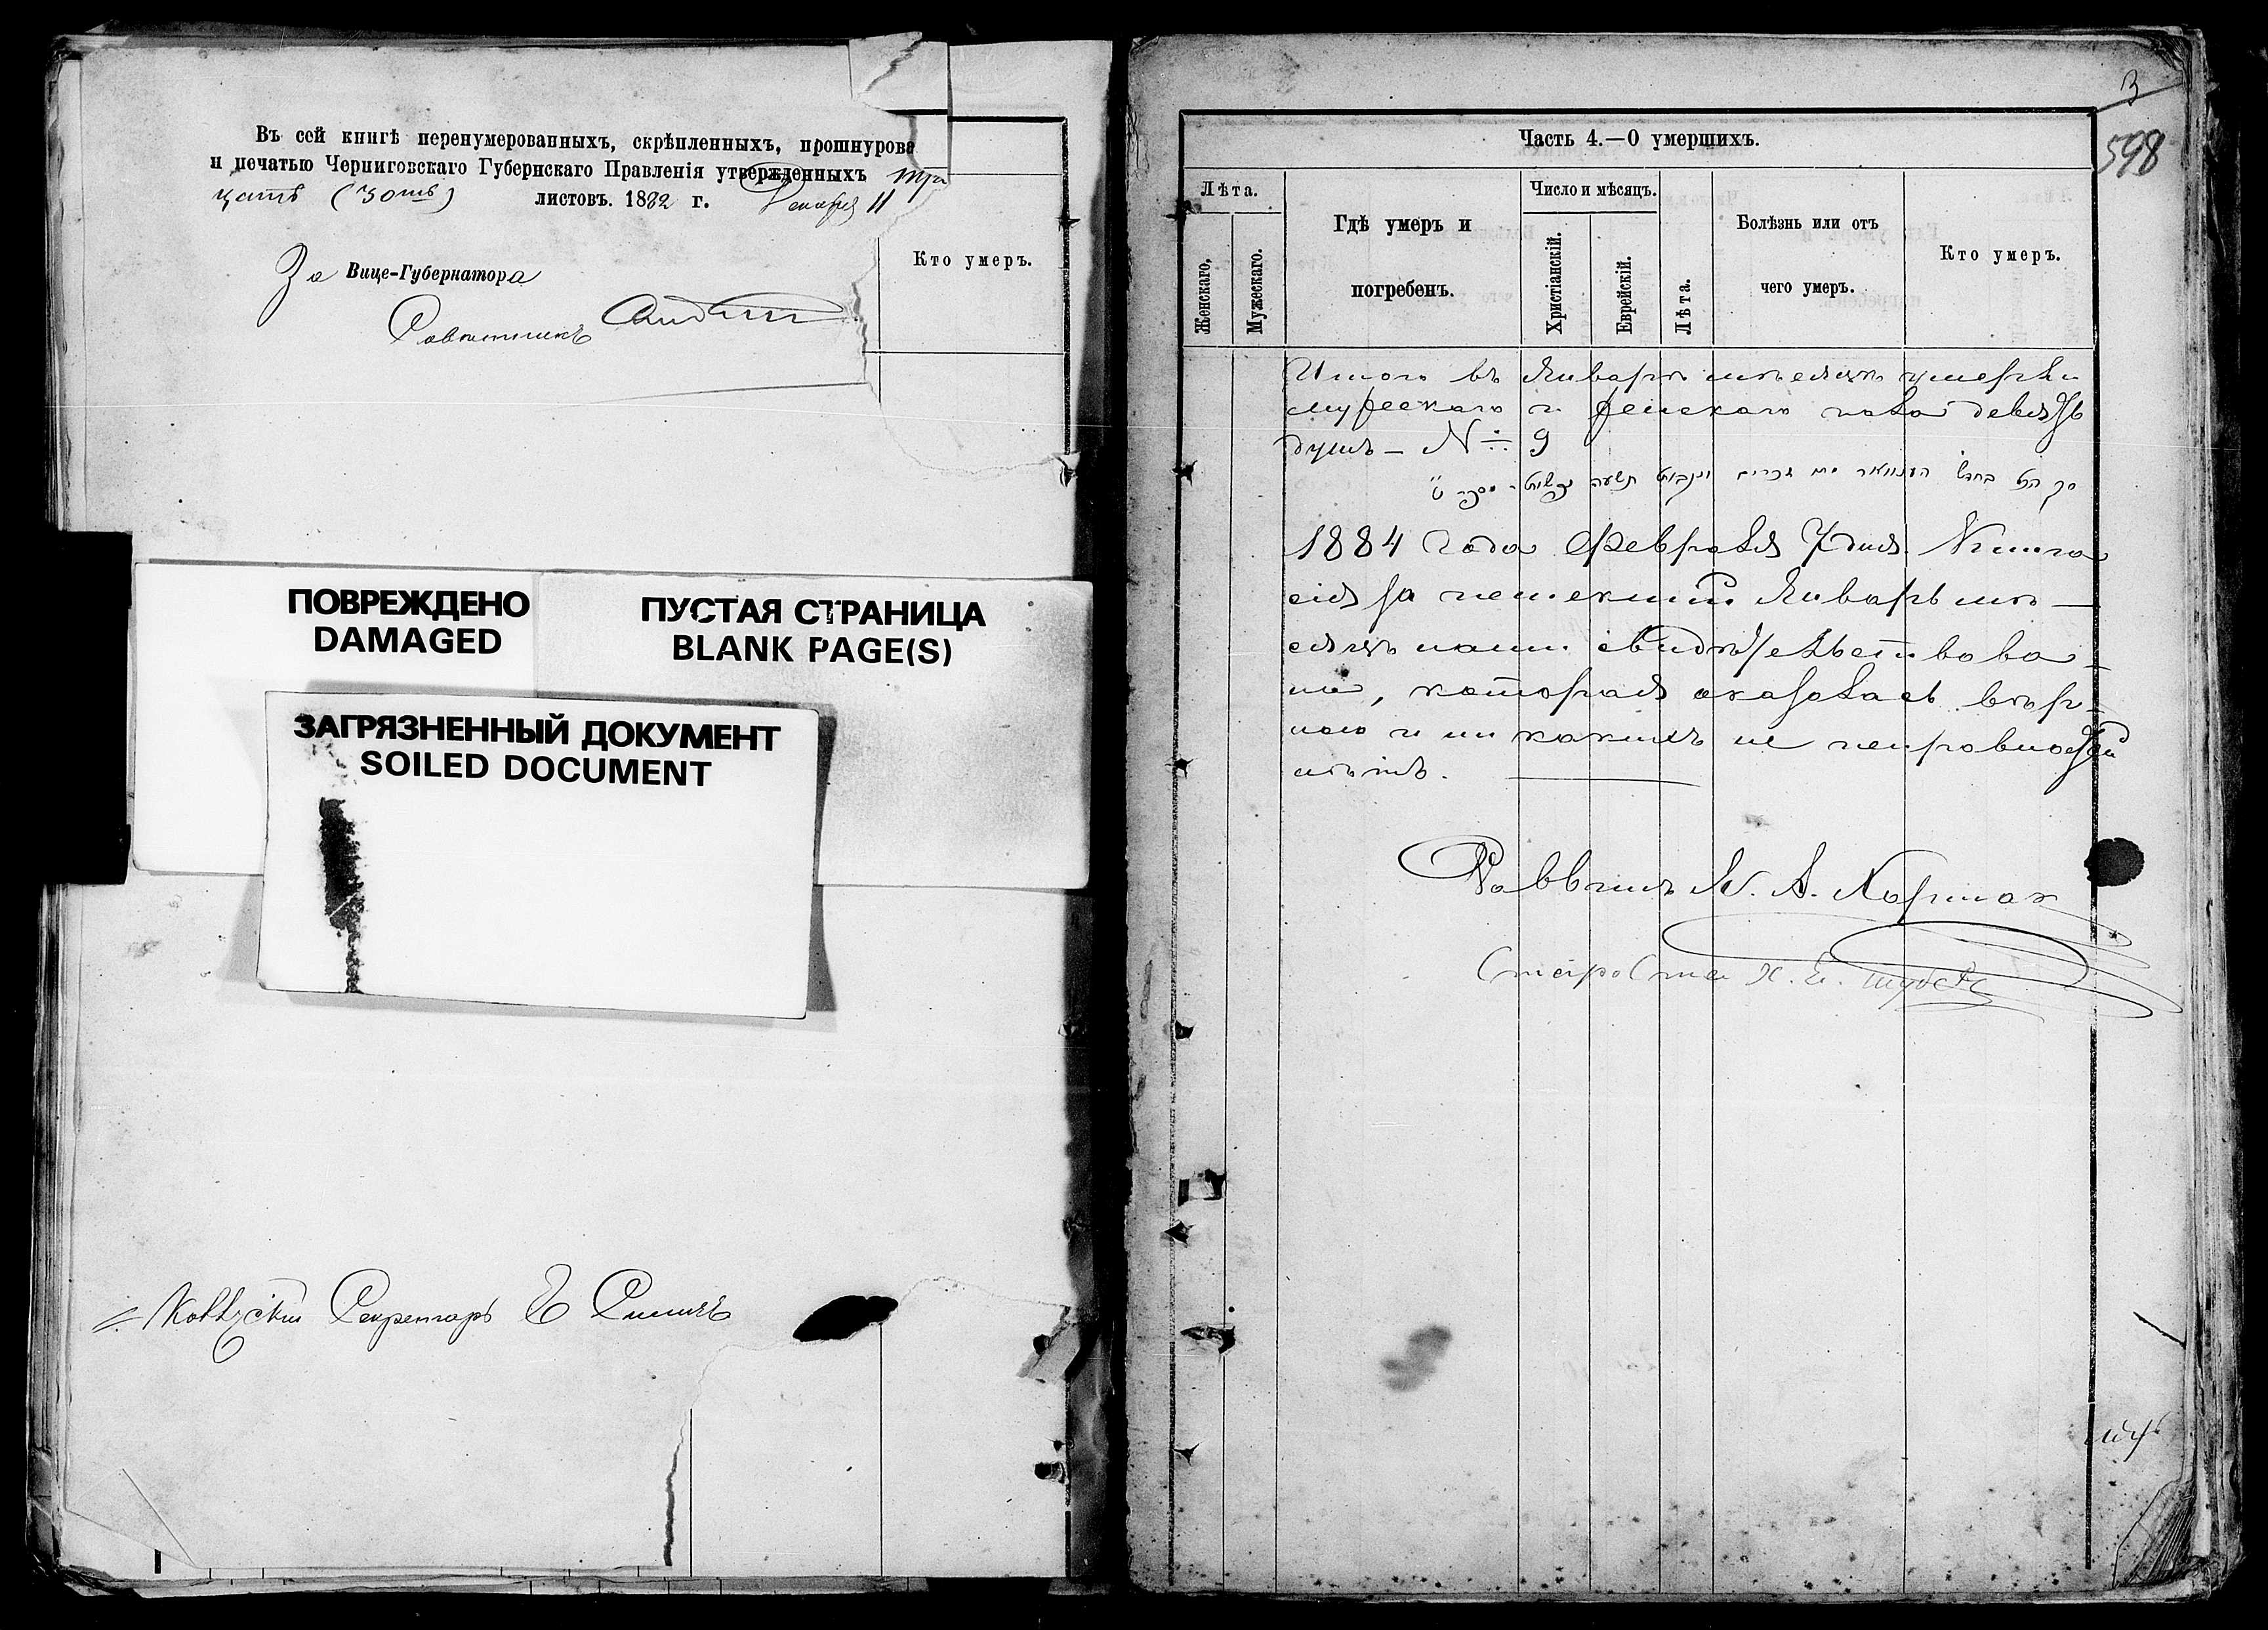 Въ сей книгѣ перенумерованныхъ, скрѣпленныхъ, прошнурова
и печатью Черниговскаго Губернскаго Правленія утвержденныхъ три
цать (30ть) листовъ. 1882 г. Декабря 11
За Вице-Губернатора
Совѣтникъ
Кто умеръ.
ПОВРЕЖДЕНО
DAMAGED
ПУСТАЯ СТРАНИЦА
BLANK PAGE(S)
ЗАГРЯЗНЕННЫЙ ДОКУМЕНТ
SOILED DOCUMENT
Секретарь
3
598
Часть 4.—О умершихъ.
Лѣта.
Женскаго.
Мужескаго.
Гдѣ умеръ и
погребенъ.
Число и мѣсяцъ.
Христіанскій.
Еврейскій.
Лѣта.
Болѣзнь или отъ
чего умеръ.
Кто умеръ.
Итого въ Январѣ мѣсяцѣ умерли
мужескаго и женскаго пола девять
душъ — № 9
1884 года Февраля 7 дня Книга
сія за истекший Январь мѣ—
сяцъ нами свидѣтельствова—
на, которая оказалась вѣр—
ною и ни какихъ не исправностей
нѣтъ.
Раввинъ
Староста Х.